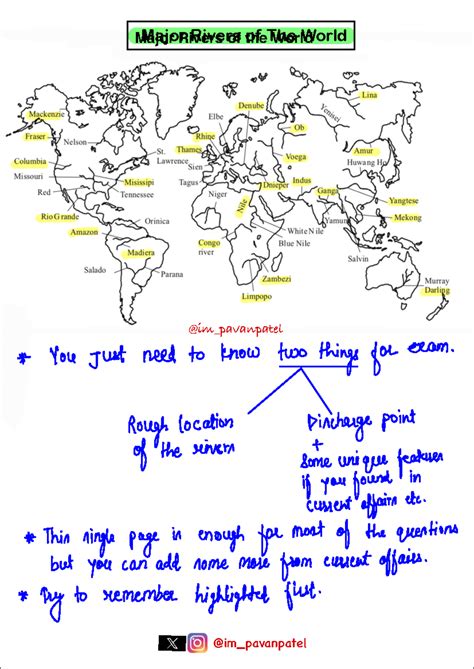 Major Rivers of The World
Major Rivers of the World
Mackenzie
Fraser
Nelson
Columbia
Missouri
Red
St.
Lawrence
Misissipi
Tennessee
Rio Grande
Orinica
Amazon
Madiera
Salado
Parana
Elbe
Denube
Rhine
Thames
Sien
Tagus
Niger
Dnieper
Nile
White Nile
Blue Nile
Congo
river
Zambezi
Limpopo
Ob
Voega
Yenisei
Lina
Amur
Huwang Ho
Indus
Ganga
Yamuna
Yangtese
Mekong
Salvin
Murray
Darling
@im_pavanpatel
* You just need to know two things for exam.
Rough location
of the rivers
Discharge point
+
Some unique features
if you found in
current affairs etc.
* This single page is enough for most of the questions
but you can add some more from current affairs.
* Try to remember highlighted first.
@im_pavanpatel